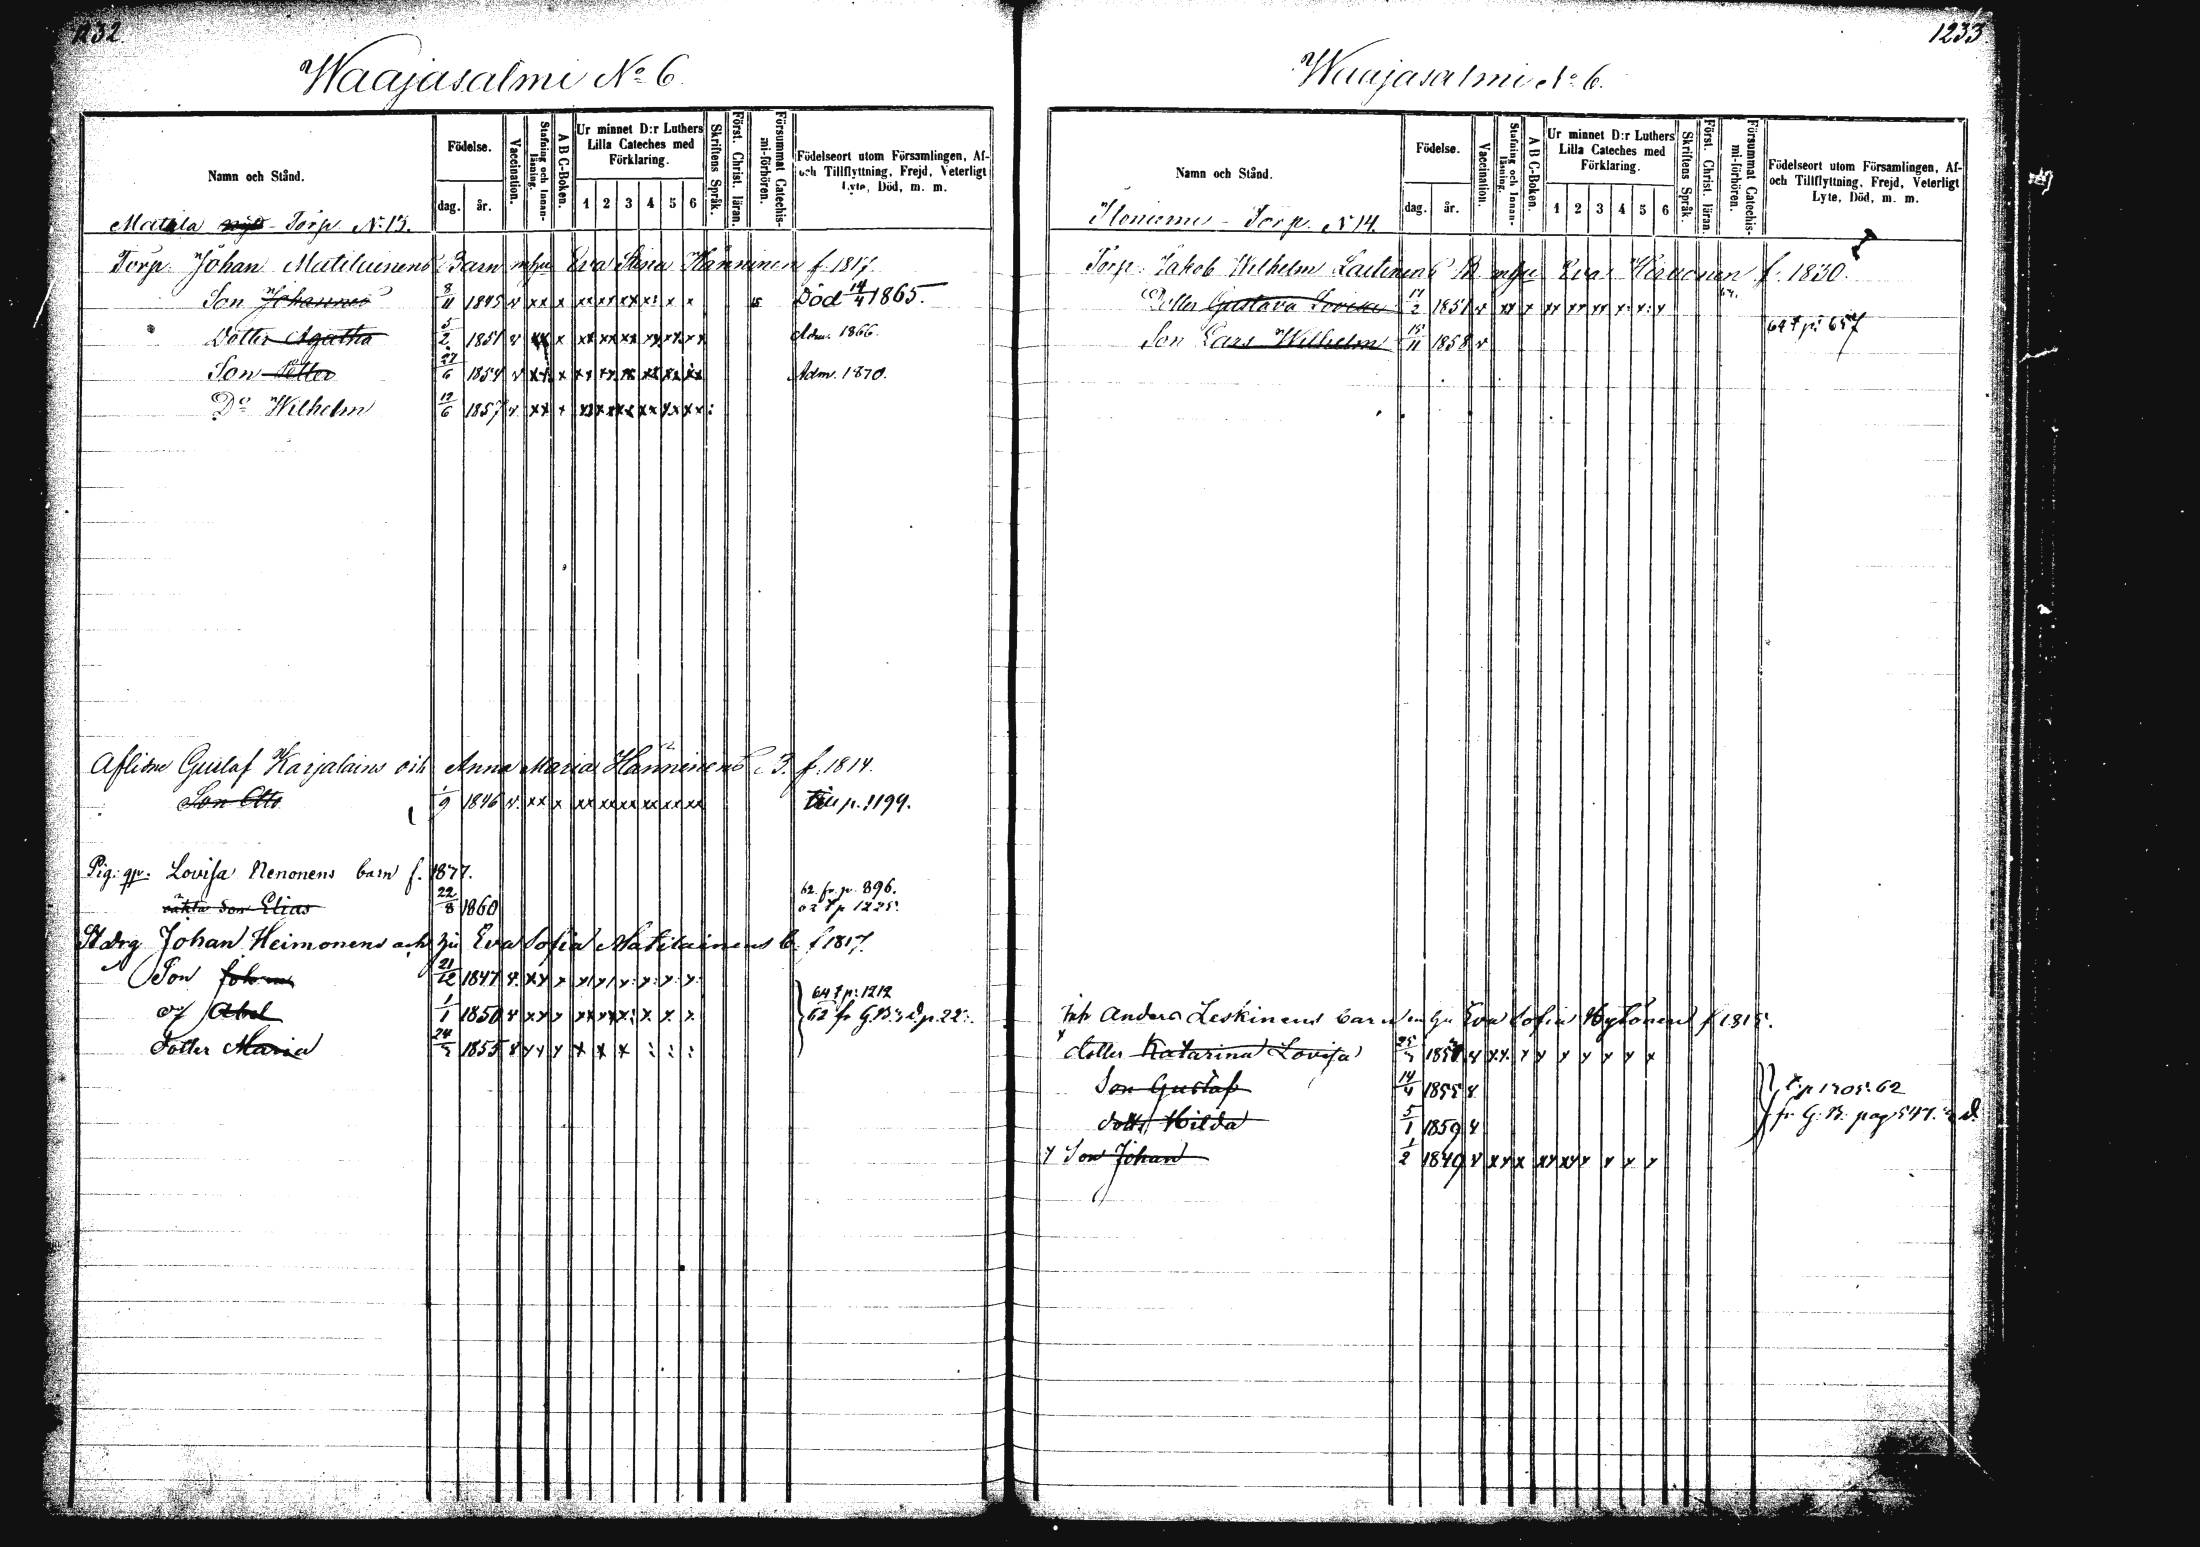 1232
Waajasalmi No 6.
Namn och Stånd.
Födelse.
dag. år.
Vaccination.
Stafning och Innan-läsning.
A B C-Boken.
Ur minnet D:r Luthers Lilla Cateches med Förklaring.
1 2 3 4 5 6
Skriftens Språk.
Först. Christ. läran.
Försummat Catechis-mi-förhören.
Födelseort utom Församlingen, Af- och Tillflyttning, Frejd, Veterligt Lyte, Död, m. m.
Torp No 13.
Torp. Johan Matilainens Barn m hu Eva Stina Hänninen f. 1817.
Son Johannes 8/11 1845 v xx x xx xx xx x: x x Död 14/4 1865.
Dotter Agatha 5/2 1851 v xx x xx xx xx xx xx xx Adm. 1866.
Son Petter 27/6 1854 v xx x xx xx xx xx xx xx Adm. 1870.
Do Wilhelm 12/6 1857 v xx x xx xx xx xx xx xx :
Aflidne Gustaf Karjalains och Anna Maria Hänninens B. f. 1814.
Son Otto 1/9 1846 v. xx x xx xx xx xx xx xx till p. 1199.
Pig: Lovisa Nenonens barn f. 1877.
oäkta son Elias 22/8 1860 62. fr. p. 896.
t p 1225.
Johan Heimonens och hu Eva Sofia Matilainens b. f 1817.
Son Johan 21/12 1847 v. xx x
Abel 1/1 1850 v xx x 64 t p. 1212
62 fr G.B. p. 22.
Dotter Maria 1855 v x x x x x x : : :
1233
Waajasalmi No 6.
Namn och Stånd.
Födelse.
dag. år.
Vaccination.
Stafning och Innan-läsning.
A B C-Boken.
Ur minnet D:r Luthers Lilla Cateches med Förklaring.
1 2 3 4 5 6
Skriftens Språk.
Först. Christ. läran.
Försummat Catechis-mi-förhören.
Födelseort utom Församlingen, Af- och Tillflyttning, Frejd, Veterligt Lyte, Död, m. m.
Torp. No 14.
Torp. Jakob Wilhelm Laitinens B m hu Eva f. 1830.
Dotter Gustava Lovisa 17/2 1851 v xx x xx xx xx x: x: x
Son Lars Wilhelm 15/11 1858 v 64 t p: 657
Inh Anders Leskinens barn m hu Eva Sofia Hytönen f 1815.
dotter Katarina Lovisa v xx. x x x x x x x
Son Gustaf 14/4 1855 v
dottr Hilda 5/1 1859 v
t. p 1205. 62
fr G. B. pag 547.
Son Johan 1/2 1849 v xx x xx xx x x x